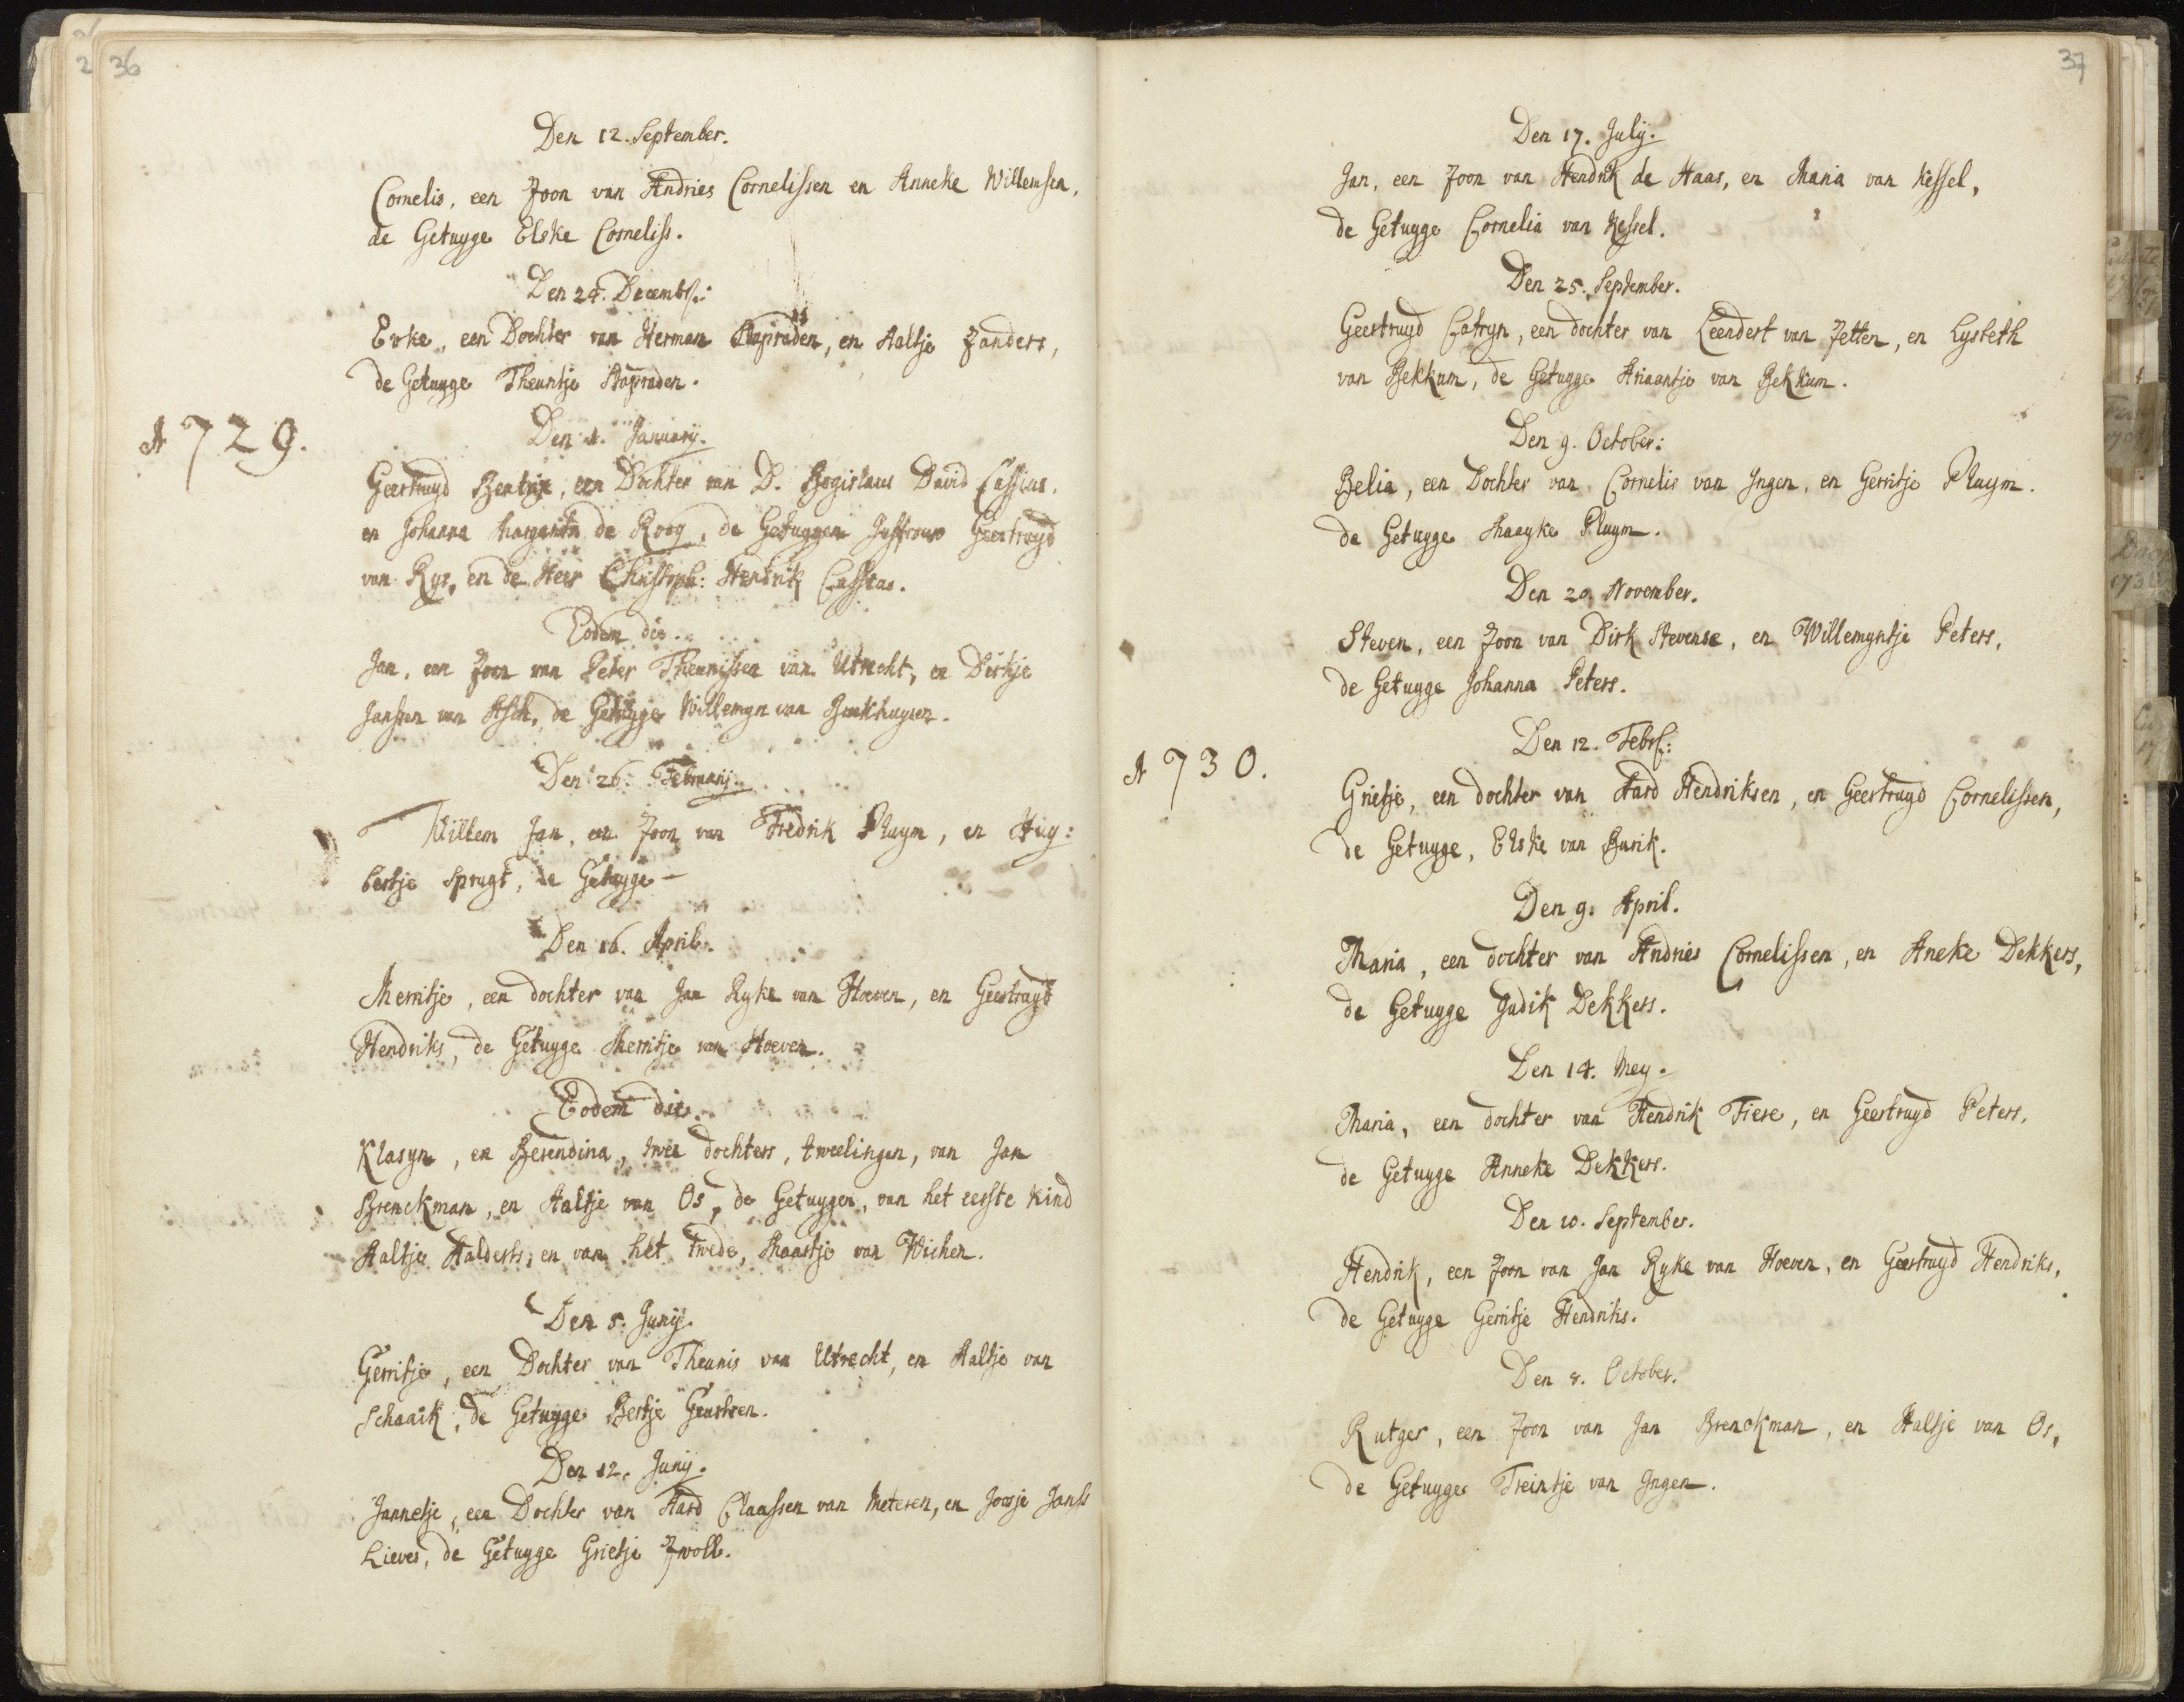 36
Den 12. September.
Cornelis, een Zoon van Andries Cornelissen en Anneke Willemsen,
de Getuyge Elske Corneliss.
Den 24. Decembr:
Evke, een Dochter van Herman Stapraden, en Aaltje Zanders,
de Getuyge Theuntje Stapraden.
A 729.
Den 1. January.
Geertruyd Beatrix, een Dochter van D. Bogislaus David Cassius,
en Johanna Margareta de Roog, de Getuygen Juffrouw Geertruyd
van Rys, en de Heer Christoph: Hendrik Cassius.
Eodem die.
Jan, een Zoon van Peter Theunissen van Utrecht, en Dirkje
Janssen van Asch, de Getuyge Willemyn van
Den 26. February.
Willem Jan, een Zoon van Fredrik Pluym, en Huy:
bertje Sprugt, de Getuyge –
Den 16. April.
Merritje, een dochter van Jan Ryke van Hoeven, en Geertruyd
Hendriks, de Getuyge Merritje van Hoeven.
Eodem die.
Klasyn, en Berendina, twee dochters, tweelingen, van Jan
Brenckman, en Aaltje van Os, de Getuygen, van het eerste kind
Aaltje Aalderts; en van het twede, Maartje van Wichen.
Den 5. Juny.
Gerritje, een Dochter van Theunis van Utrecht, en Aaltje van
Schaaik, de Getuyge Bertje Geurtsen.
Den 12. Juny.
Jannetje, een Dochter van Aard Claassen van Meteren, en Joosje Janss
Lieves, de Getuyge Grietje Zwoll.
37
Den 17. July.
Jan, een Zoon van Hendrik de Haas, en Maria van Kessel,
de Getuyge Cornelia van Kessel.
Den 25. September.
Geertruyd Catryn, een dochter van Leendert van Zetten, en Lysbeth
van Bekkum, de Getuyge Ariaantje van Bekkum.
Den 9. October:
Belia, een Dochter van Cornelis van Jngen, en Gerritje Pluym.
de Getuyge Maayke Pluym.
Den 20. November.
Steven, een Zoon van Dirk Stevense, en Willemyntje Peters,
de Getuyge Johanna Peters.
A 730.
Den 12. Febr:
Grietje, een dochter van Aard Hendriksen, en Geertruyd Cornelissen,
de Getuyge, Elske van Burik.
Den 9. April.
Maria, een dochter van Andries Cornelissen, en Aneke Dekkers,
de Getuyge Judik Dekkers.
Den 14. Mey.
Maria, een dochter van Hendrik Fiere, en Geertruyd Peters,
de Getuyge Anneke Dekkers.
Den 10. September.
Hendrik, een Zoon van Jan Ryke van Hoeven, en Geertruyd Hendriks,
de Getuyge Gerritje Hendriks.
Den 8. October.
Rutger, een Zoon van Jan Brenckman, en Aaltje van Os,
de Getuyge Treintje van Jngen.